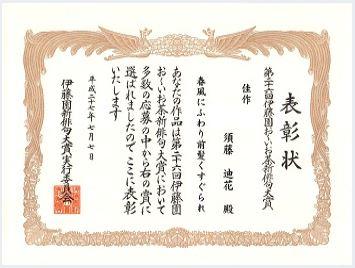 表彰状
第二十六回伊藤園お〜いお茶新俳句大賞
佳作
須藤 迪花 殿
春風にふわり前髪くすぐられ
あなたの作品は第二十六回伊藤園
お〜いお茶新俳句大賞において
多数の応募の中から右の賞に
選ばれましたので ここに表彰
いたします
平成二十七年七月七日
伊藤園新俳句大賞実行委員会